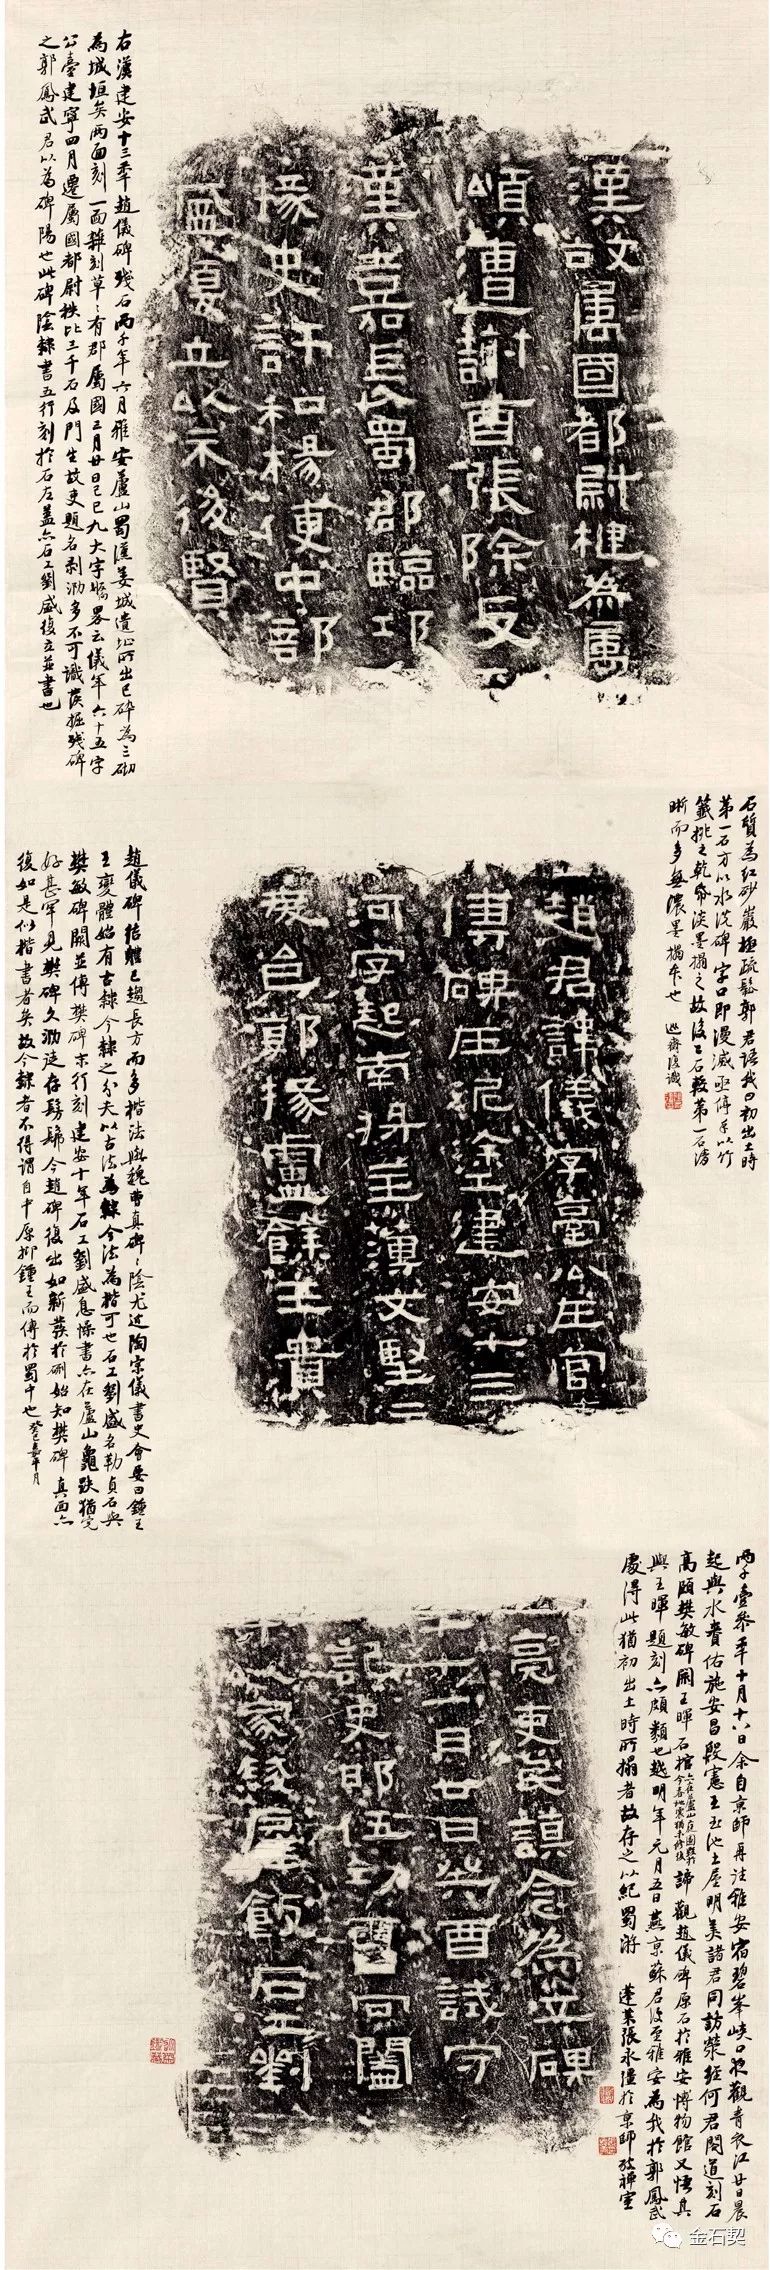 漢故屬國都尉楗為屬
頌遭謝酉張除反
漢嘉長蜀郡臨邛
掾史許和楊便中部
盛復立以示後賢
右漢建安十三年趙儀碑殘石丙子年六月雅安蘆山蜀漢姜城遺址所出已碎為三砌
為城垣矣兩面刻一面雜刻草草有郡屬國三月廿日己巳九大字略云儀年六十五字
公臺建寧四月遷屬國都尉秩比三千石及門生故吏題名剥泐多不可識發掘殘碑
之郭鳳武君以為碑陽也此碑陰隸書五行刻於石左蓋亦石工劉盛復立並書也
石質為紅砂巖極疏鬆郭君語我曰初出土時
第一石方以水洗碑字口即漫滅亟停手以竹
籤挑之乾帋淡墨搨之故後二石較第一石清
晰而多無濃墨搨本也 復識
趙君諱儀字臺公在官
專碑在泥塗建安十三
河字起南將主簿文堅
掾盧餘王貴
趙儀碑結體已趨長方而多楷法與魏曹真碑碑陰尤近陶宗儀書史會要曰鍾王
王變體始有古隸今隸之分夫以古法為隸今法為楷可也石工劉盛名勒貞石與
樊敏碑闕並傳樊碑末行刻建安十年石工劉盛息懆書亦在蘆山龜趺猶完
好甚罕見樊碑久泐廷存髣髴今趙碑復出如新發於硎始知樊碑真面亦
復如是似楷書者矣故今隸者不得謂自中原抑鍾王而傳於蜀中也癸巳嘉平月
亮吏民謨念為立碑
十一月廿日癸酉試守
記史邯伍功曹同闔
以家錢雇飯石工劉
丙子壹叁年十月十六日余自京師再往雅安宿碧峯峽口夜觀青衣江廿日晨
起與水賚佑施安昌殷憲王玉池土屋明美諸君同訪滎經何君閣道刻石
高頤樊敏碑闕王暉石棺諦觀趙儀碑原石於雅安博物館又悟其
與王暉題刻亦頗類也越明年元月五日燕京蘇君復至雅安為我於郭鳳武
處得此猶初出土時所搨者故存之以紀蜀游 蓬萊張永強於京師破禪室
金石契